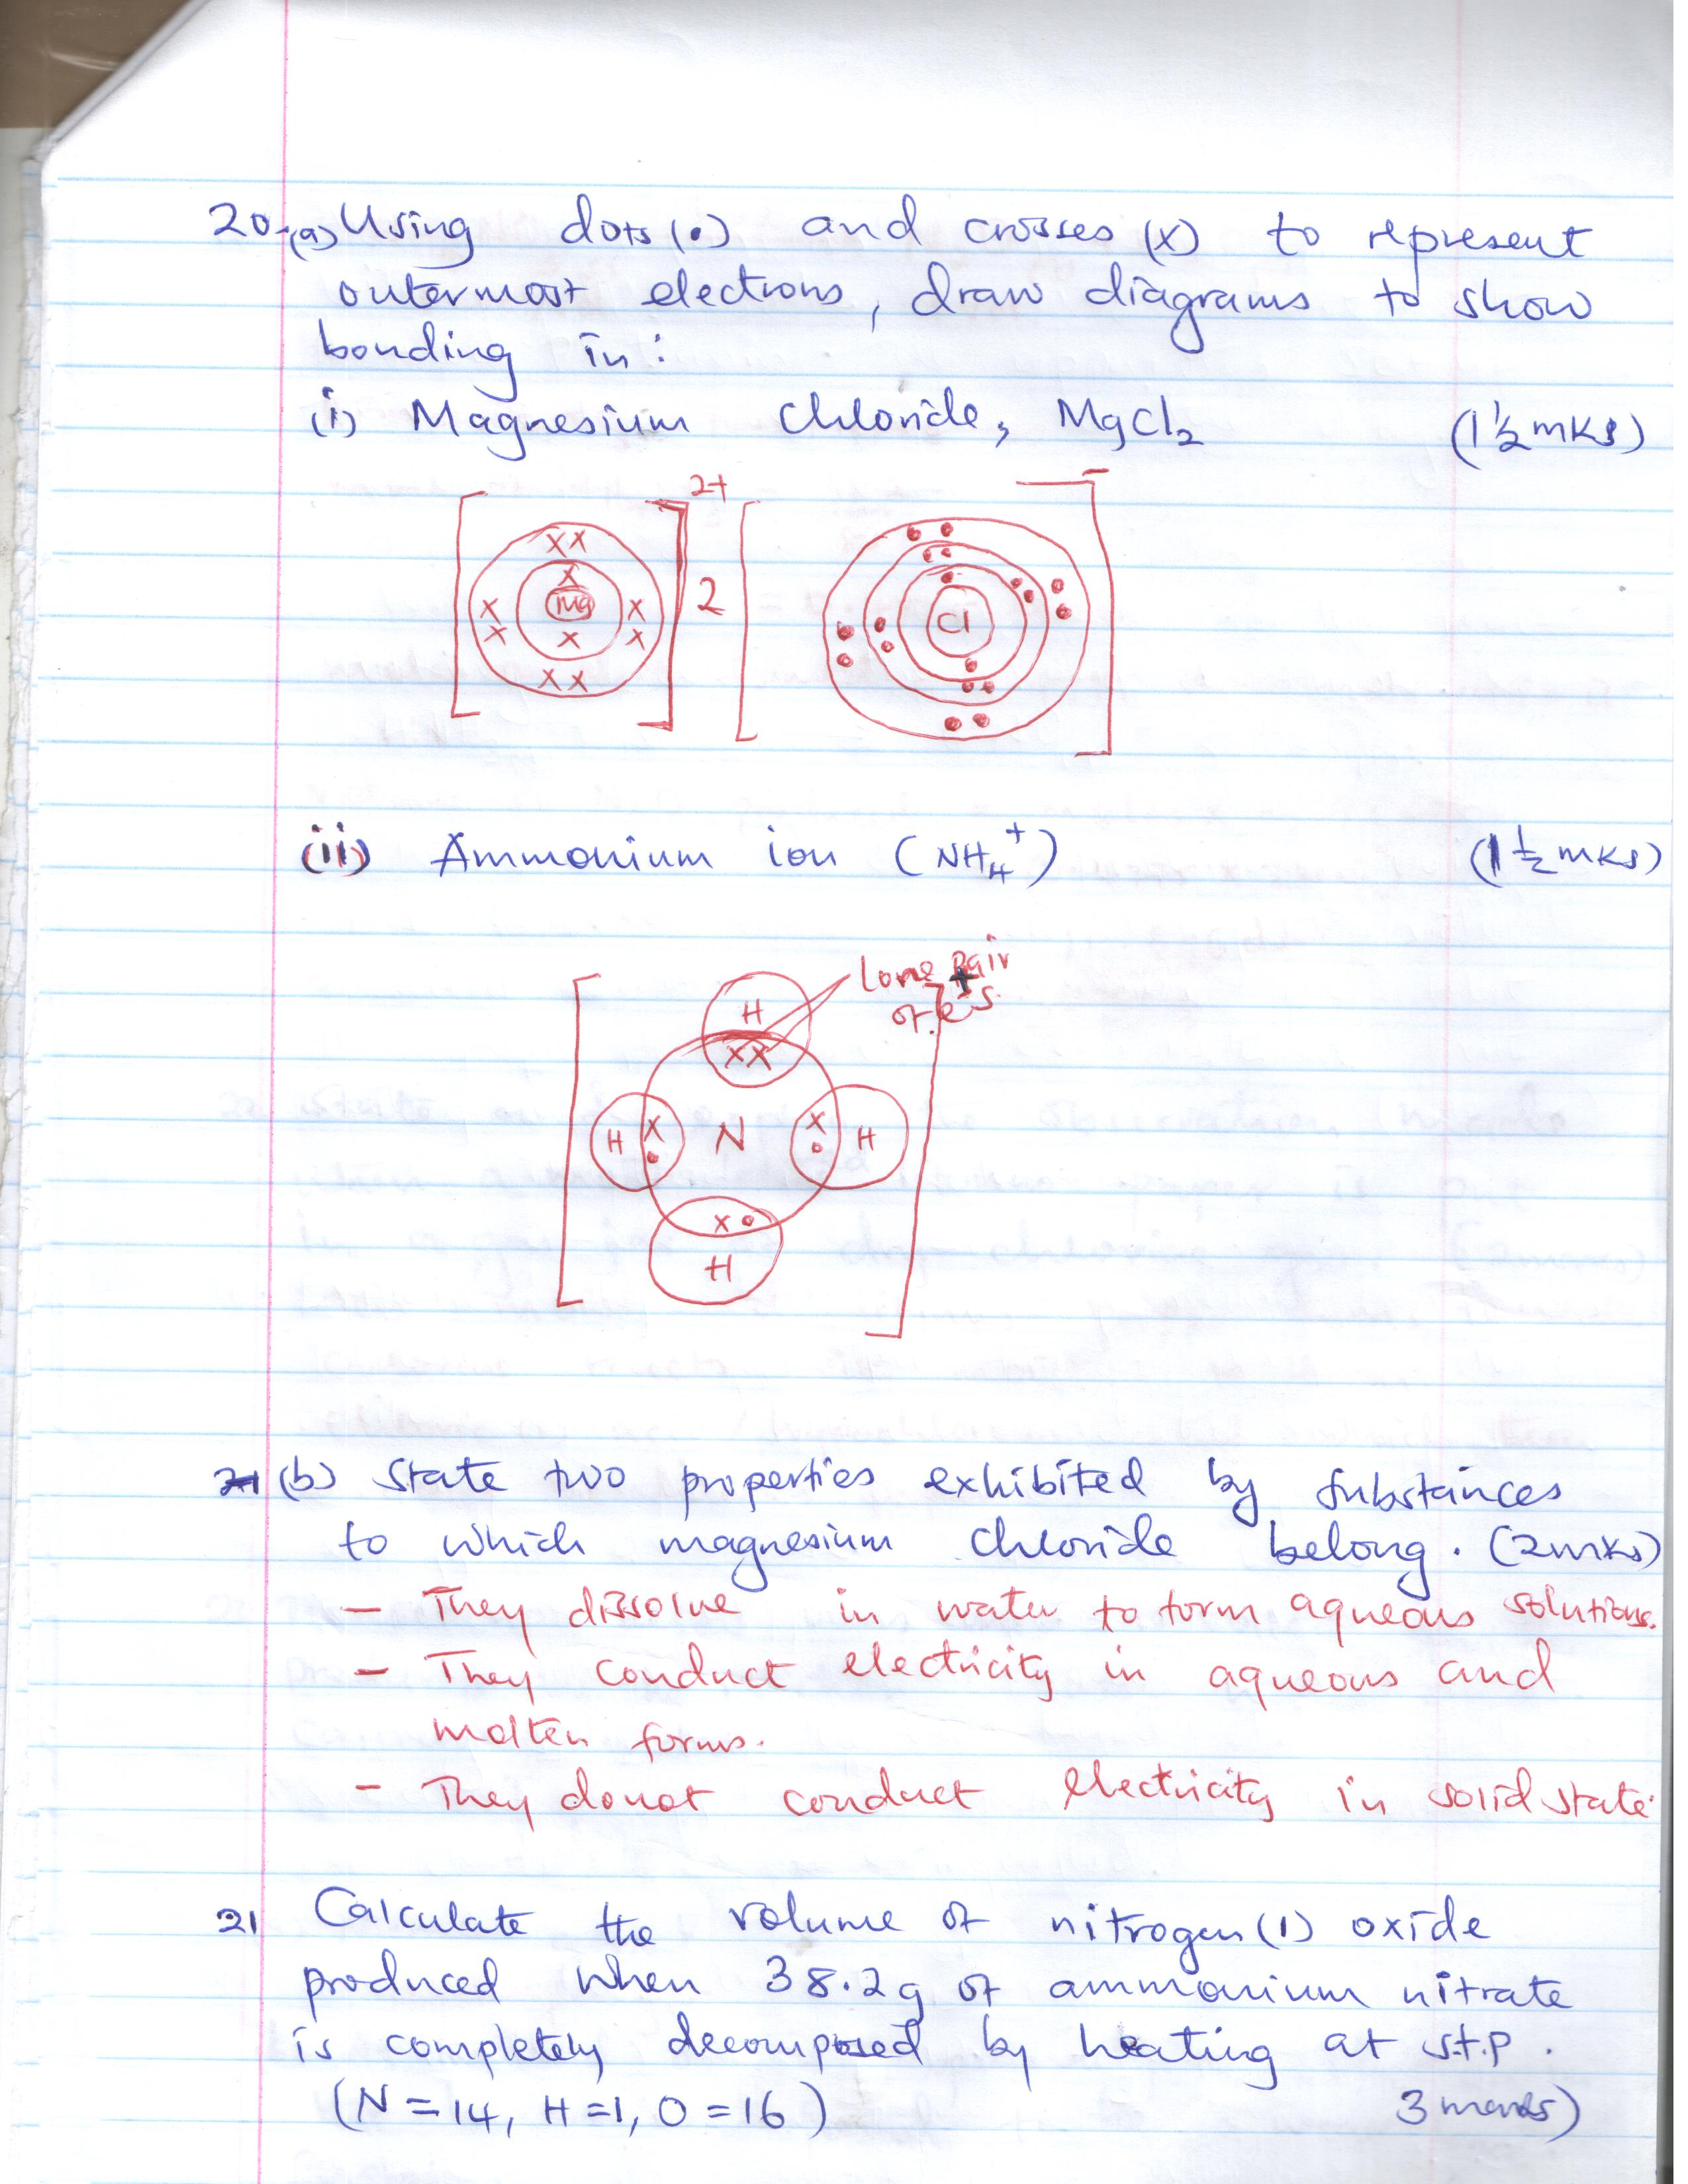 20.(a) Using dots (•) and crosses (x) to represent
outermost electrons, draw diagrams to show
bonding in:
(i) Magnesium Chloride, MgCl₂ (1½ mks)
2+
-
x x
x
Mg
x
x x
x x
x
x x
2
Cl
(ii) Ammonium ion (NH₄⁺) (1½ mks)
Lone Pair
of e⁻s.
+
H
xx
H x • N x • H
x •
H
21 (b) State two properties exhibited by substances
to which magnesium chloride belong. (2mks)
- They dissolve in water to form aqueous solutions.
- They conduct electricity in aqueous and
molten forms.
- They do not conduct electricity in solid state.
21 Calculate the volume of nitrogen (1) oxide
produced when 38.2g of ammonium nitrate
is completely decomposed by heating at s.t.p.
(N = 14, H = 1, O = 16) 3 marks)